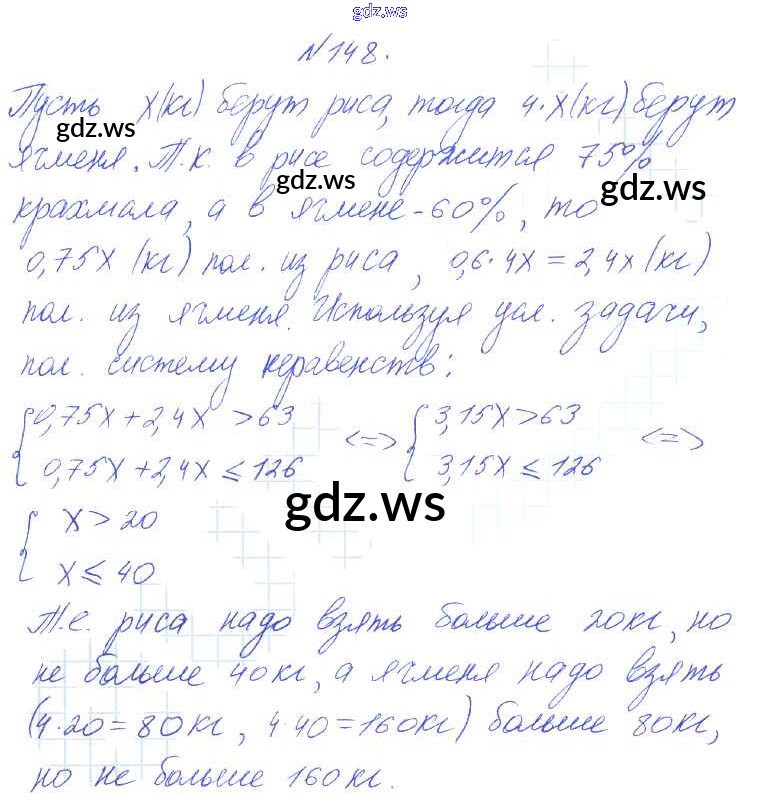 gdz.ws
№148.
Пусть х(кг) берут риса, тогда 4·х(кг) берут
gdz.ws
ячменя. Т.к. в рисе содержится 75%
gdz.ws
gdz.ws
крахмала, а в ячмене - 60%, то
0,75х (кг) пол. из риса, 0,6·4х = 2,4х (кг)
пол. из ячменя. Используя усл. задачи,
пол. систему неравенств:
{ 0,75х + 2,4х > 63 <=> { 3,15х > 63 <=>
0,75х + 2,4х ≤ 126 3,15х ≤ 126
gdz.ws
{ х > 20
х ≤ 40
Т.е. риса надо взять больше 20кг, но
не больше 40кг, а ячменя надо взять
(4·20=80кг, 4·40=160кг) больше 80кг,
но не больше 160кг.